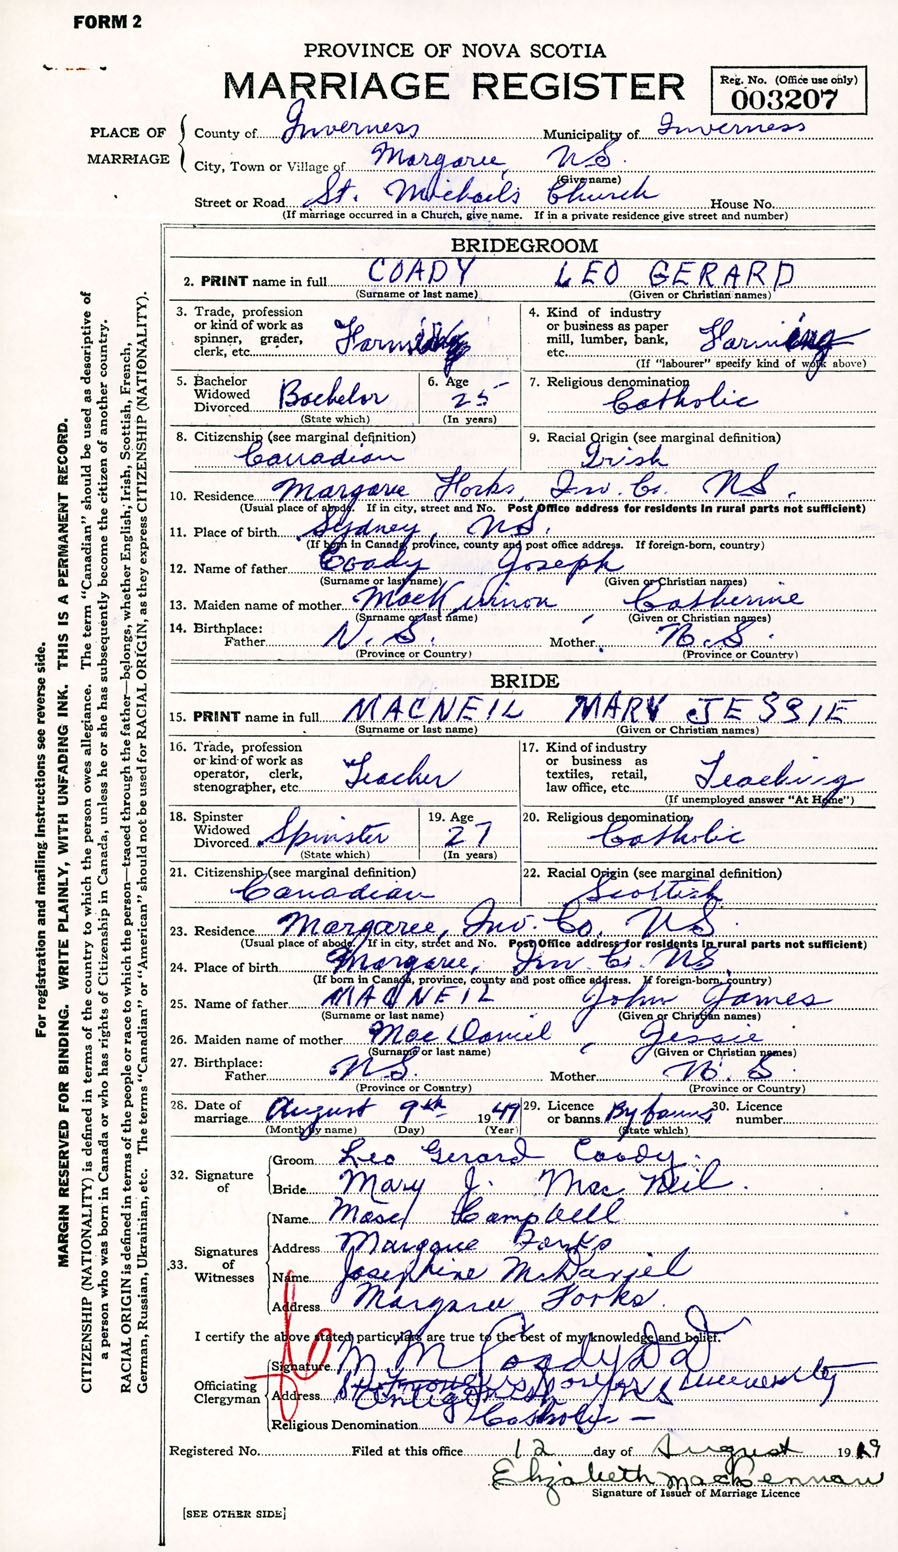 FORM 2
PROVINCE OF NOVA SCOTIA
MARRIAGE REGISTER
Reg. No. (Office use only)
003207
PLACE OF MARRIAGE
County of Inverness Municipality of Inverness
City, Town or Village of Margaree, NS.
(Give name)
Street or Road St. Michaels Church House No.
(If marriage occurred in a Church, give name. If in a private residence give street and number)
BRIDEGROOM
2. PRINT name in full COADY LEO GERARD
(Surname or last name) (Given or Christian names)
3. Trade, profession or kind of work as spinner, grader, clerk, etc. Farming
4. Kind of industry or business as paper mill, lumber, bank, etc. Farming
(If "labourer" specify kind of work above)
5. Bachelor Widowed Divorced Bachelor
(State which)
6. Age 25
(In years)
7. Religious denomination Catholic
8. Citizenship (see marginal definition) Canadian
9. Racial Origin (see marginal definition) Irish
10. Residence Margaree Forks, Inv. Co. NS.
(Usual place of abode. If in city, street and No. Post Office address for residents in rural parts not sufficient)
11. Place of birth Sydney, NS.
(If born in Canada, province, county and post office address. If foreign-born, country)
12. Name of father Coady Joseph
(Surname or last name) (Given or Christian names)
13. Maiden name of mother MacKinnon, Catherine
(Surname or last name) (Given or Christian names)
14. Birthplace:
Father N.S. Mother N.S.
(Province or Country) (Province or Country)
BRIDE
15. PRINT name in full MACNEIL MARY JESSIE
(Surname or last name) (Given or Christian names)
16. Trade, profession or kind of work as operator, clerk, stenographer, etc. Teacher
17. Kind of industry or business as textiles, retail, law office, etc. Teaching
(If unemployed answer "At Home")
18. Spinster Widowed Divorced Spinster
(State which)
19. Age 27
(In years)
20. Religious denomination Catholic
21. Citizenship (see marginal definition) Canadian
22. Racial Origin (see marginal definition) Scottish
23. Residence Margaree, Inv. Co. NS
(Usual place of abode. If in city, street and No. Post Office address for residents in rural parts not sufficient)
24. Place of birth Margaree, Inv. Co. NS
(If born in Canada, province, county and post office address. If foreign-born, country)
25. Name of father MACNEIL John James
(Surname or last name) (Given or Christian names)
26. Maiden name of mother MacDaniel, Jessie
(Surname or last name) (Given or Christian names)
27. Birthplace:
Father NS. Mother N.S.
(Province or Country) (Province or Country)
28. Date of marriage August 9th 1949
(Month by name) (Day) (Year)
29. Licence or banns By banns
(State which)
30. Licence number
32. Signature of
Groom Leo Gerard Coady.
Bride Mary J. MacNeil.
33. Signatures of Witnesses
Name Campbell
Address Margaree Forks
Name Josephine McDaniel
Address Margaree Forks.
I certify the above stated particulars are true to the best of my knowledge and belief.
Officiating Clergyman
Signature M. M. Coady D D
Address University
Religious Denomination Catholic —
Registered No. Filed at this office 12 day of August 1949
Elizabeth MacLennan
Signature of Issuer of Marriage Licence
[SEE OTHER SIDE]
For registration and mailing instructions see reverse side.
MARGIN RESERVED FOR BINDING. WRITE PLAINLY, WITH UNFADING INK. THIS IS A PERMANENT RECORD.
CITIZENSHIP (NATIONALITY) is defined in terms of the country to which the person owes allegiance. The term "Canadian" should be used as descriptive of
a person who was born in Canada or who has rights of Citizenship in Canada, unless he or she has subsequently become the citizen of another country.
RACIAL ORIGIN is defined in terms of the people or race to which the person—traced through the father—belongs, whether English, Irish, Scottish, French,
German, Russian, Ukrainian, etc. The terms "Canadian" or "American" should not be used for RACIAL ORIGIN, as they express CITIZENSHIP (NATIONALITY).